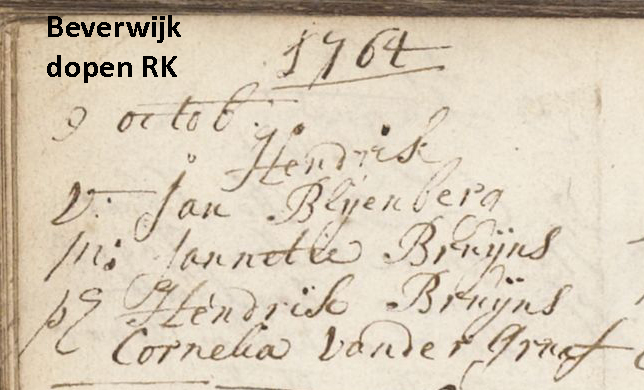 Beverwijk
dopen RK
1764
9 octob:
Hendrik
V: Jan Blyenberg
m: Jannetie Bruijns
pg Hendrik Bruijns
Cornelia Vander Graaf